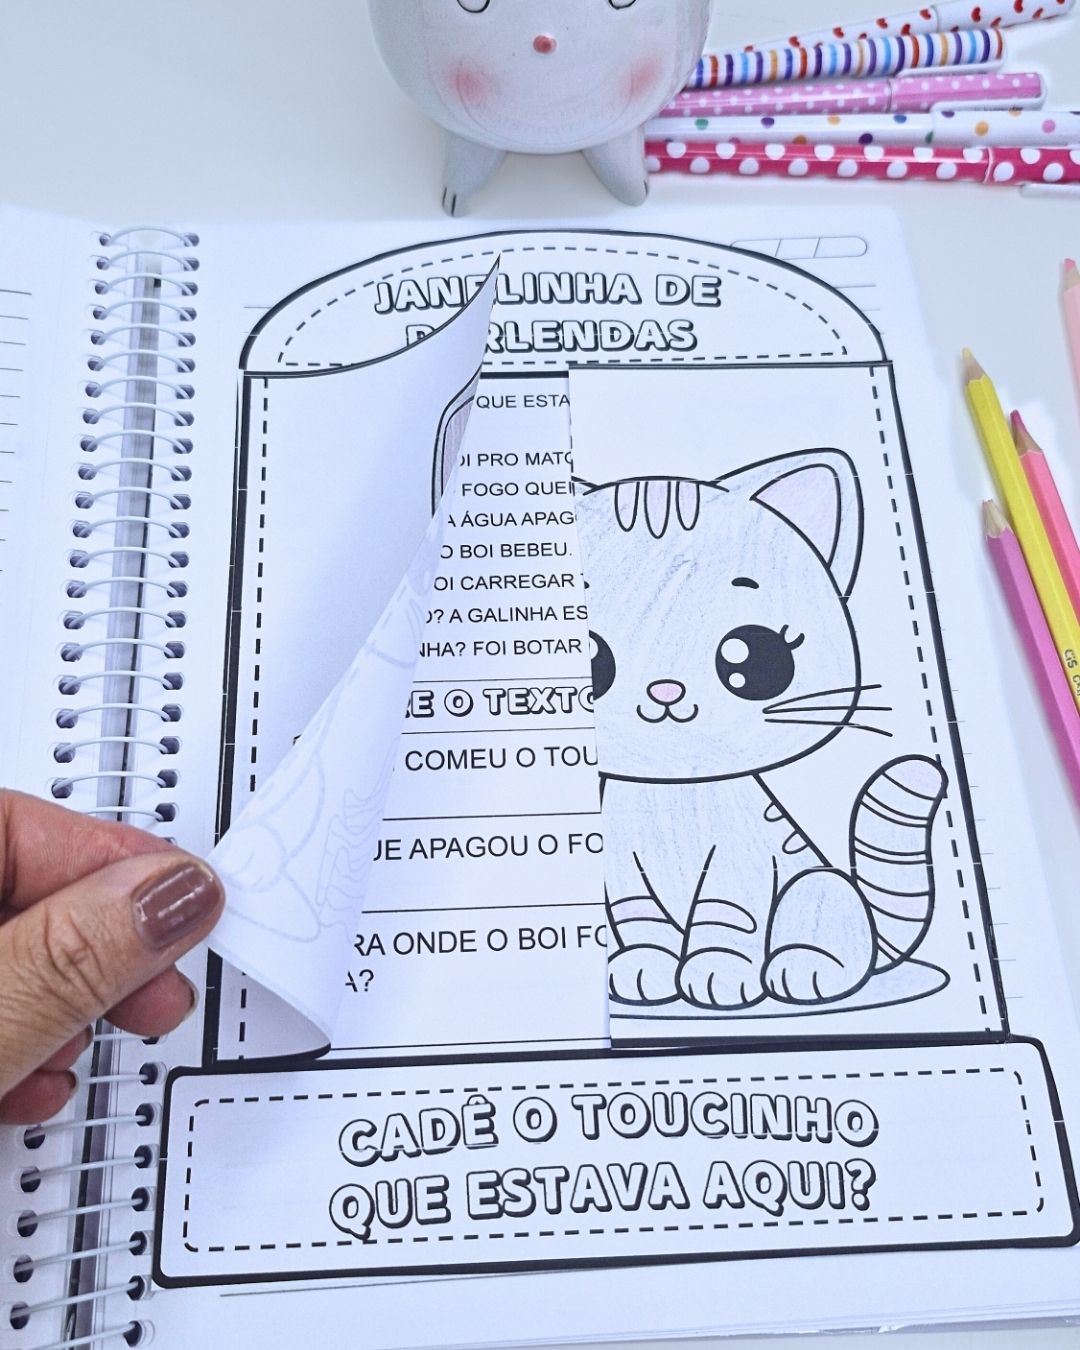 JANELINHA DE
PARLENDAS
QUE ESTA
PRO MATO
FOGO QUEI
A ÁGUA APAG
O BOI BEBEU.
OI CARREGAR
O? A GALINHA ES
NHA? FOI BOTAR
E O TEXTO
COMEU O TOU
UE APAGOU O FO
RA ONDE O BOI FO
A?
CADÊ O TOUCINHO
QUE ESTAVA AQUI?